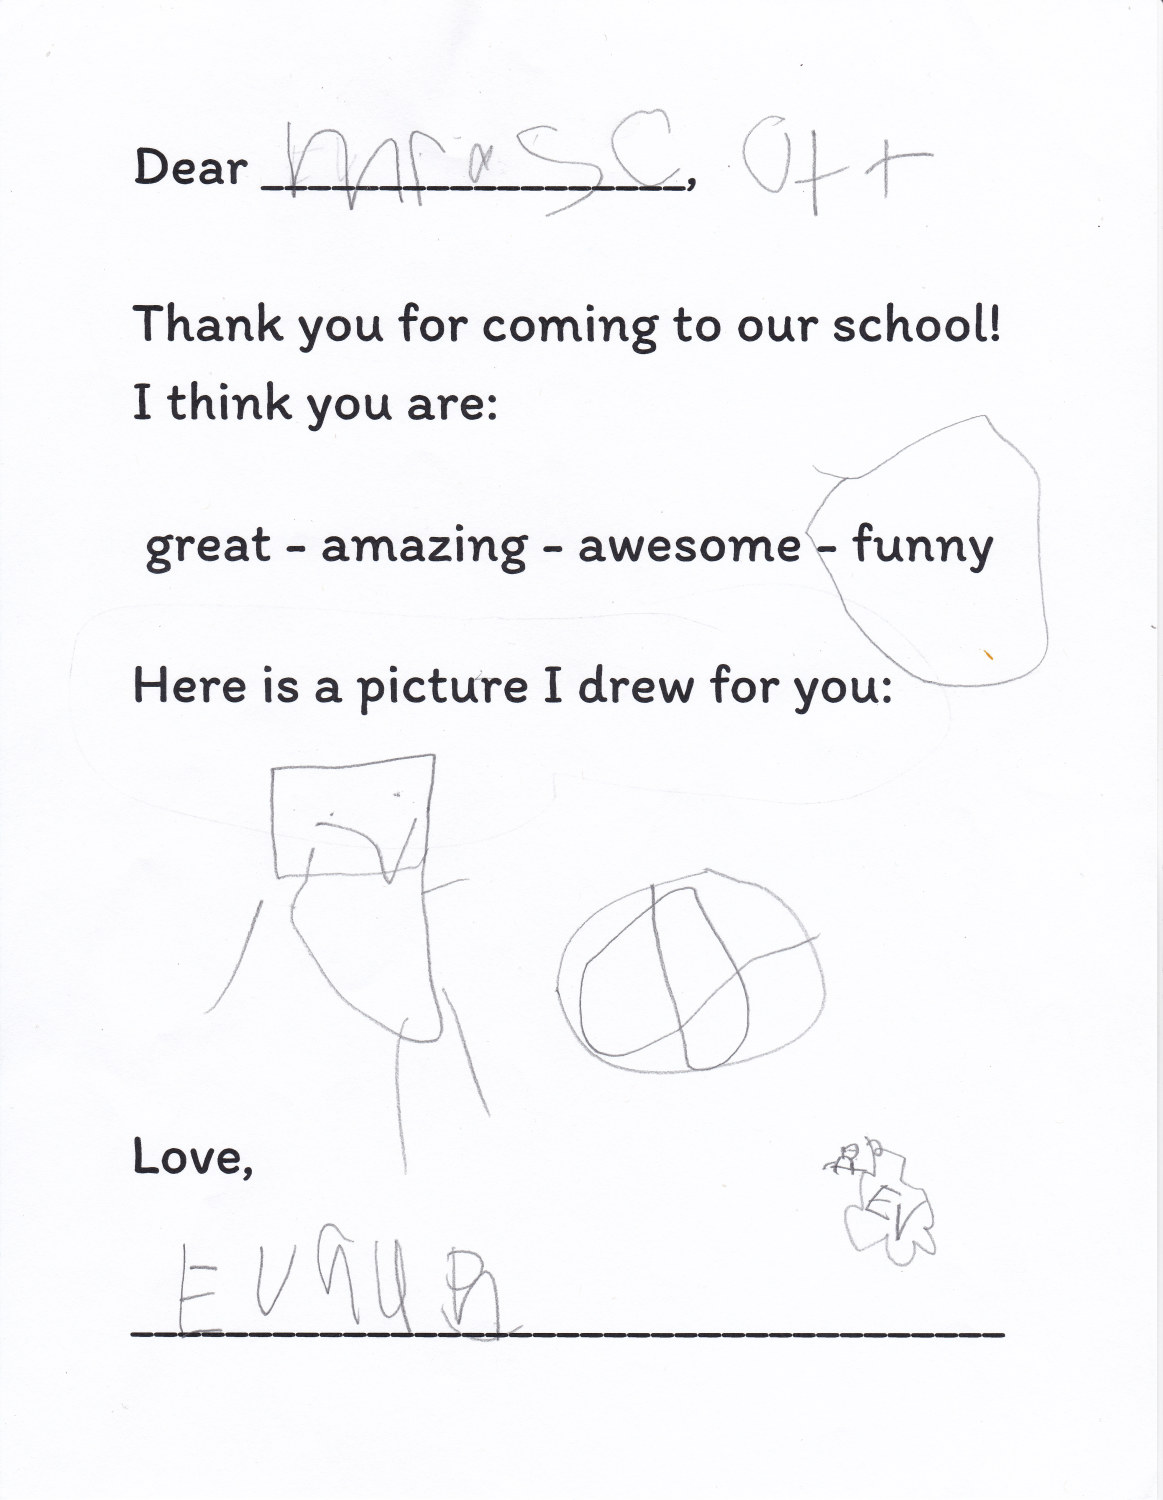 Dear Mr. SCOtt,
Thank you for coming to our school!
I think you are:
great - amazing - awesome - funny
Here is a picture I drew for you:
Love,
EV